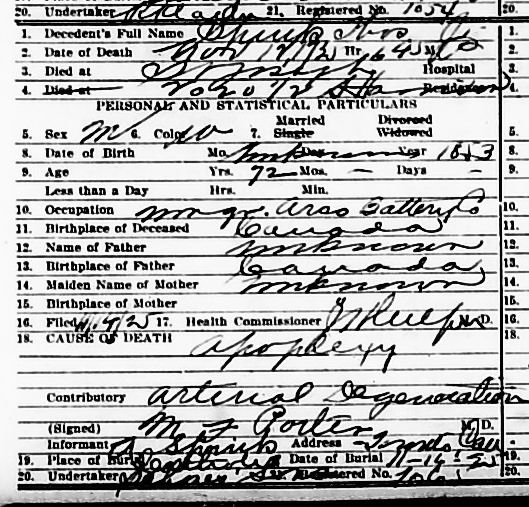 20. Undertaker 21. Registered No. 1054 20.
1. Decedent's Full Name 1.
2. Date of Death Nov 12/25 Hr 6 45 M. P 2.
3. Died at St Joseph Hospital 3.
4. Died at Residence 4.
PERSONAL AND STATISTICAL PARTICULARS
5. Sex M 6. Color W 7. Married Single Divorced Widowed 5.
8. Date of Birth Mo. Unknown Day Year 1853 8.
9. Age Yrs. 72 Mos. — Days — 9.
Less than a Day Hrs. Min.
10. Occupation mngr. Battery Co 10.
11. Birthplace of Deceased Canada 11.
12. Name of Father unknown 12.
13. Birthplace of Father Canada 13.
14. Maiden Name of Mother unknown 14.
15. Birthplace of Mother 15.
16. Filed 17. Health Commissioner M. D. 16.
18. CAUSE OF DEATH 18.
apoplexy
Contributory arterial Degeneration
(Signed) M F Porter M. D.
Informant Address Toronto Can
19. Place of Burial Date of Burial 11-14-25 19.
20. Undertaker 21. Registered No. 20.